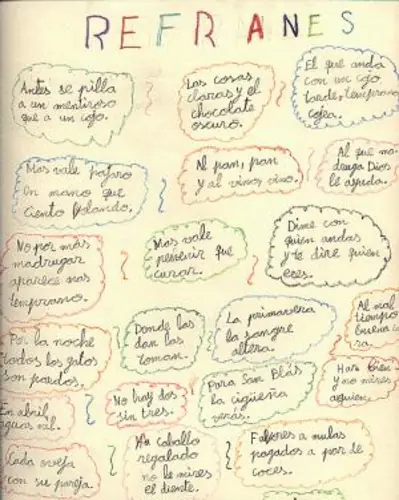 REFRANES
Antes se pilla
a un mentiroso
que a un cojo.
Las cosas
claras y el
chocolate
oscuro.
El que anda
con un cojo
tarde, temprano
cojea.
Mas vale pajaro
en mano que
ciento volando.
Al pan, pan
y al vino, vino.
Al que ma-
druga Dios
le ayuda.
No por más
madrugar
aparece mas
temprano.
Mas vale
prevenir que
curar.
Dime con
quien andas
y te dire quien
eres.
Por la noche
todos los gatos
son pardos.
Donde las
dan las
toman.
La primavera
la sangre
altera.
Al mal
tiempo
buena ca
ra.
Haz bien
y no mires
a quien.
En abril,
aguas mil.
No hay dos
sin tres.
Para San Blás
la cigüeña
verás.
Cada oveja
con su pareja.
A caballo
regalado
no le mires
el diente.
a mulas
pagados a
coces.